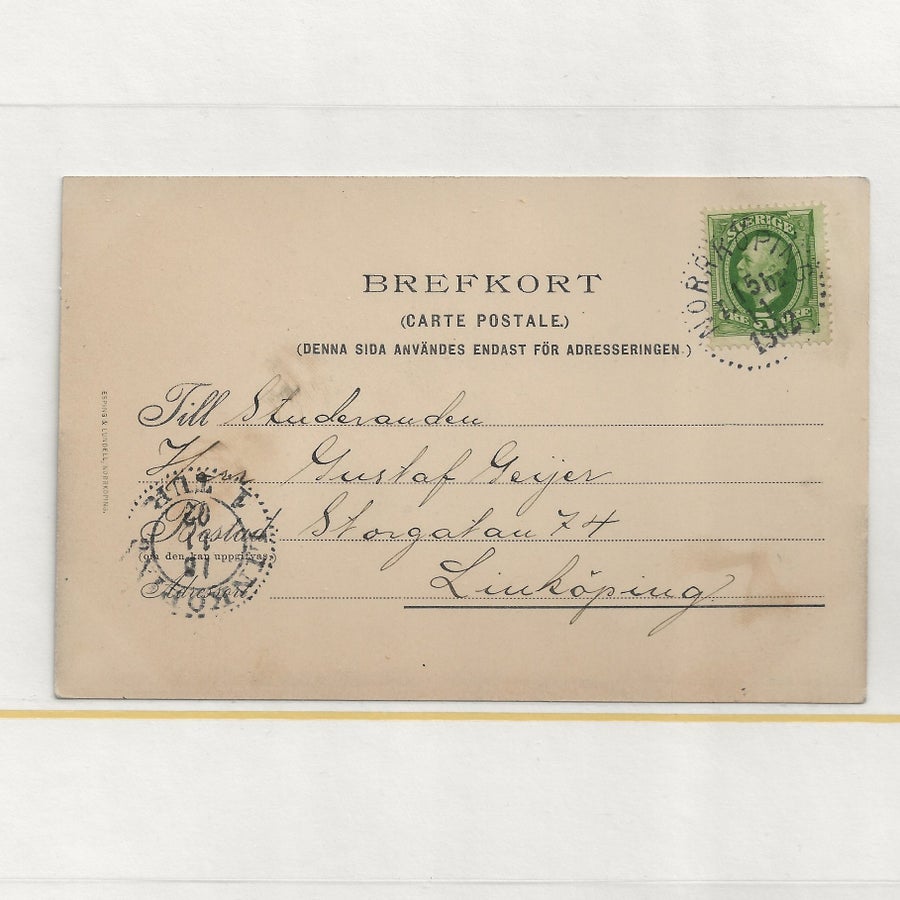 SVERIGE
5 ÖRE
NORRKÖPING
1902
BREFKORT
(CARTE POSTALE.)
(DENNA SIDA ANVÄNDES ENDAST FÖR ADRESSERINGEN.)
ESPING & LUNDELL, NORRKÖPING.
Till Studeranden
Herr Gustaf Geijer
Bostad Storgatan 74
(om den kan uppgifvas)
Adressort Linköping
LINKÖPING
1 TUR
15
11
02